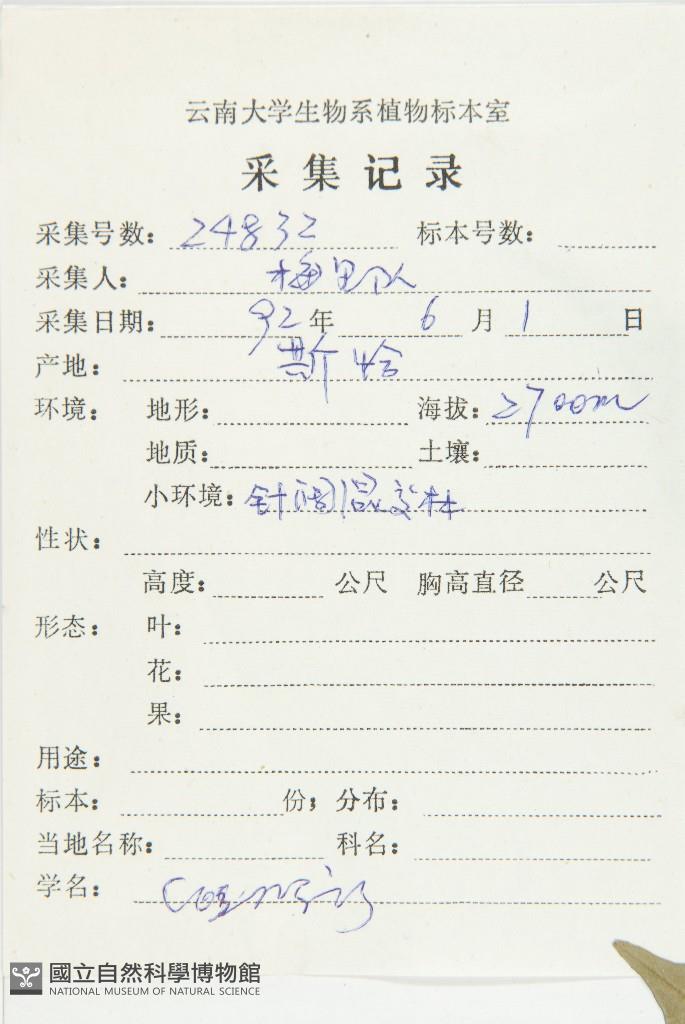 云南大学生物系植物标本室
采集记录
采集号数：24832 标本号数：
采集人：梅里队
采集日期：92年6月1日
产地：斯恰
环境：地形： 海拔：2700m
地质： 土壤：
小环境：针阔混交林
性状：
高度： 公尺 胸高直径 公尺
形态：叶：
花：
果：
用途：
标本： 份；分布：
当地名称： 科名：
学名：
國立自然科學博物館
NATIONAL MUSEUM OF NATURAL SCIENCE